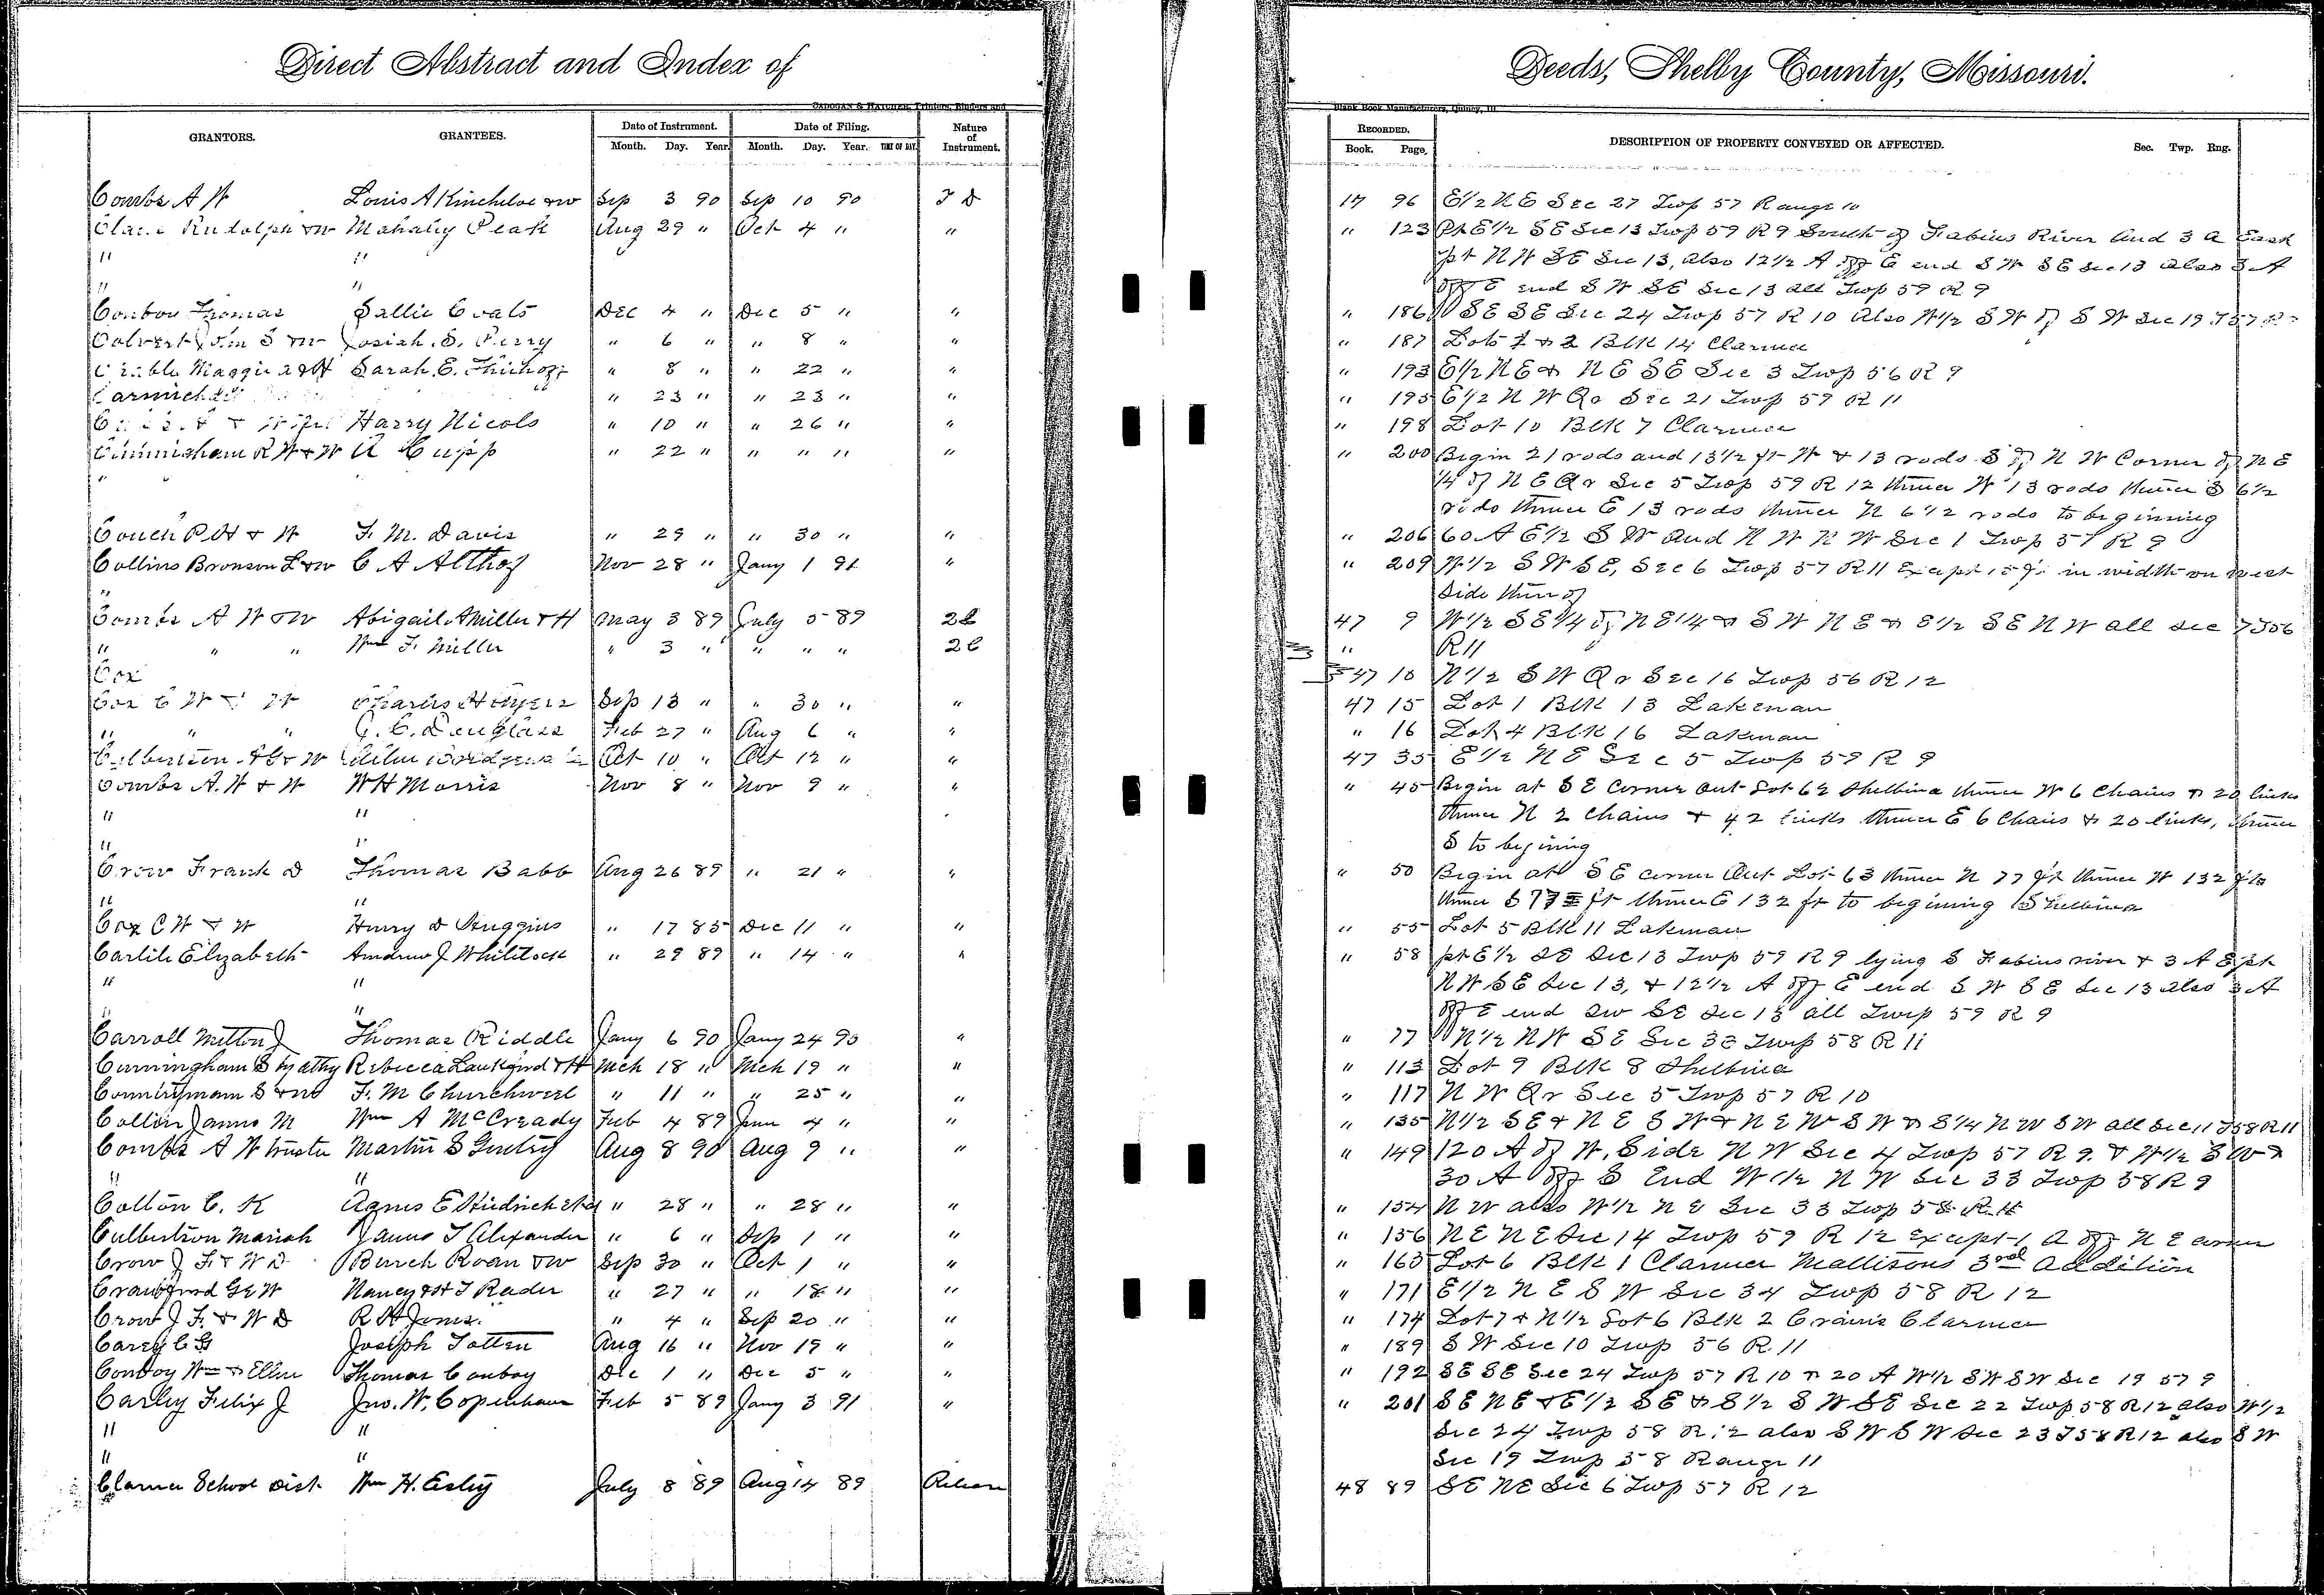 Direct Abstract and Index of
Deeds, Shelby County, Missouri.
CADOGAN & HATCHER, Printers, Binders and
Blank Book Manufacturers, Quincy, Ill
GRANTORS. GRANTEES. Date of Instrument. Month. Day. Year. Date of Filing. Month. Day. Year. TIME OF DAY. Nature of Instrument.
RECORDED. Book. Page. DESCRIPTION OF PROPERTY CONVEYED OR AFFECTED. Sec. Twp. Rng.
Combs A W Louis A Kincheloe & w Sep 3 90 Sep 10 90 17 96 E1/2 N E Sec 27 Twp 57 Range 10
Rudolph & w Mahaley Peak Aug 29 " Oct 4 " " " 123 Pt E1/2 S E Sec 13 Twp 59 R 9 South of Fabius River And 3 A East
" " pt N W S E Sec 13, also 12 1/2 A off E end S W S E Sec 13 also 3 A
" " off E end S W S E Sec 13 all Twp 59 R 9
Thomas Sallie Dec 4 " Dec 5 " " " 186 S E S E Sec 24 Twp 57 R 10 Also W1/2 S W of S W Sec 19 T 57 R
Calvert S & w Josiah S. Perry " 6 " " 8 " " " 187 Lots 1 & 2 Blk 14 Clarence
Maggie & H Sarah E. " 8 " " 22 " " " 193 E1/2 N E & N E S E Sec 3 Twp 56 R 9
" 23 " " 23 " " " 195 E1/2 N W Qr Sec 21 Twp 59 R 11
& Wife Harry Nicols " 10 " " 26 " " " 198 Lot 10 Blk 7 Clarence
Cunningham R W & W A Cupp " 22 " " " " " " 200 Begin 21 rods and 13 1/2 ft W & 13 rods S of N W Corner of N E
" 1/4 of N E Qr Sec 5 Twp 59 R 12 thence W 13 rods thence S 6 1/2
rods thence E 13 rods thence N 6 1/2 rods to beginning
Couch P H & W F. M. Davis " 29 " " 30 " " " 206 60 A E1/2 S W and N W N W Sec 1 Twp 57 R 9
Collins Bronson L & w C A Althof Nov 28 " Jany 1 91 " " 209 W1/2 S W S E, Sec 6 Twp 57 R 11 Except 15 ft in width on west
" side thereof
Combs A W & W Abigail Miller & H May 3 89 July 5 89 47 9 W1/2 S E 1/4 of N E 1/4 & S W N E & E1/2 S E N W all sec 7 T 56
" " " Wm F. Miller " 3 " " " " " R 11
Cox 47 10 N1/2 S W Qr Sec 16 Twp 56 R 12
Cox C W & W Charles Sep 13 " " 30 " " 47 15 Lot 1 Blk 13 Lakenan
" " " G. C. Douglass Feb 27 " Aug 6 " " " 16 Lot 4 Blk 16 Lakenan
Culbertson & W Oct 10 " Oct 12 " " 47 35 E1/2 N E Sec 5 Twp 59 R 9
Combs A. W & W W H Morris Nov 8 " Nov 9 " " " 45 Begin at S E Corner Out Lot 62 Shelbina thence W 6 Chains & 20 links
" " thence N 2 chains & 42 links thence E 6 Chains & 20 links, thence
" " S to begining
Crow Frank D Thomas Babb Aug 26 89 " 21 " " " 50 Begin at S E corner Out Lot 63 thence N 77 ft thence W 132 fts
" " thence S 77 ft thence E 132 ft to begining Shelbina
Cox C W & W Henry D Huggins " 17 85 Dec 11 " " " 55 Lot 5 Blk 11 Lakenan
Carlile Elizabeth Andrew J Whitlock " 29 89 " 14 " " " 58 pt E1/2 S E Sec 13 Twp 59 R 9 lying S Fabius river & 3 A E pt
" " N W S E Sec 13, & 12 1/2 A off E end S W S E Sec 13 also 3 A
" " off E end S W S E Sec 13 all Twp 59 R 9
Carroll Milton J Thomas Riddle Jany 6 90 Jany 24 90 " " 77 N1/2 N W S E Sec 33 Twp 58 R 11
Cunningham S by atty Rebecca Lankford & H Mch 18 " Mch 19 " " " 113 Lot 9 Blk 8 Shelbina
S & w F. M Churchwell " 11 " " 25 " " " 117 N W Qr Sec 5 Twp 57 R 10
James M Wm A McCready Feb 4 89 June 4 " " " 135 N1/2 S E & N E S W & N E W S W & S 1/4 N W S W all Sec 11 T 58 R 11
Combs A W trustee Martin S Aug 8 90 Aug 9 " " " 149 120 A of W. Side N W Sec 4 Twp 57 R 9. & W1/2 S W &
" " 30 A off S End W1/2 N W Sec 33 Twp 58 R 9
Cotton C. K Agnes E " 28 " " 28 " " " 154 N W also W1/2 N E Sec 33 Twp 58 R 11
Culbertson Mariah James T Alexander " 6 " Sep 1 " " " 156 N E N E Sec 14 Twp 59 R 12 Except 1 A off N E corner
Crow J F & W D Burch Roan & w Sep 30 " Oct 1 " " " 165 Lot 6 Blk 1 Clarence Mallisons 3rd Addition
Crawford G W Nancy & H T Rader " 27 " " 18 " " " 171 E1/2 N E S W Sec 34 Twp 58 R 12
Crow J F. & W D R H Jones " 4 " Sep 20 " " " 174 Lot 7 & N1/2 Lot 6 Blk 2 Crains Clarence
C G Joseph Totten Aug 16 " Nov 19 " " " 189 S W Sec 10 Twp 56 R. 11
Conboy Wm & Ellen Thomas Conboy Dec 1 " Dec 5 " " " 192 S E S E Sec 24 Twp 57 R 10 & 20 A W1/2 S W S W Sec 19 57 9
Carley Felix J Jno. W. Copenhaver Feb 5 89 Jany 3 91 " " 201 S E N E & E1/2 S E & S1/2 S W S E Sec 22 Twp 58 R 12 also W1/2
" " Sec 24 Twp 58 R 12 also S W S W Sec 23 T 58 R 12 also S W
" " Sec 19 Twp 58 Range 11
Clarence School Dist Wm H. July 8 89 Aug 14 89 Release 48 89 S E N E Sec 6 Twp 57 R 12